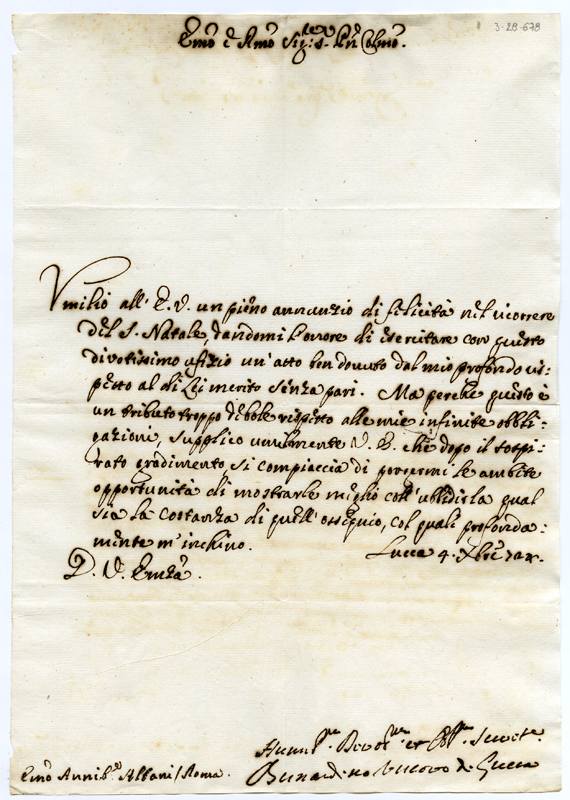 3-28-678
Emo e Rmo Sig:r S. Prñ Colmo.
Umilio all' E.V. un pieno annunzio di felicità nel ricorrere
del S. Natale, dandomi l'onore di esercitare con questo
divotissimo ufizio un' atto ben dovuto dal mio profondo ris-
petto al di Lei merito senza pari. Ma perche questo è
un tributo troppo debole rispetto alle mie infinite obbli-
gazioni, supplico umilmente V. E. che dopo il sospi-
rato gradimento si compiaccia di porgermi le ambite
opportunità di mostrarle meglio coll' ubbidirla qual
sia la costanza di quell' ossequio, col quale profonda-
mente m' inchino. Lucca 4. Xbre
D. V. Emza.
Humilme. Devotme. et Obblme. Servite.
Emo Annibe. Albani / Roma.
Bernardino Vescovo di Lucca